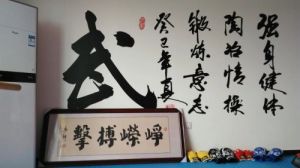 强身健体
陶冶情操
锻炼意志
癸巳年夏
武
峥嵘搏擊